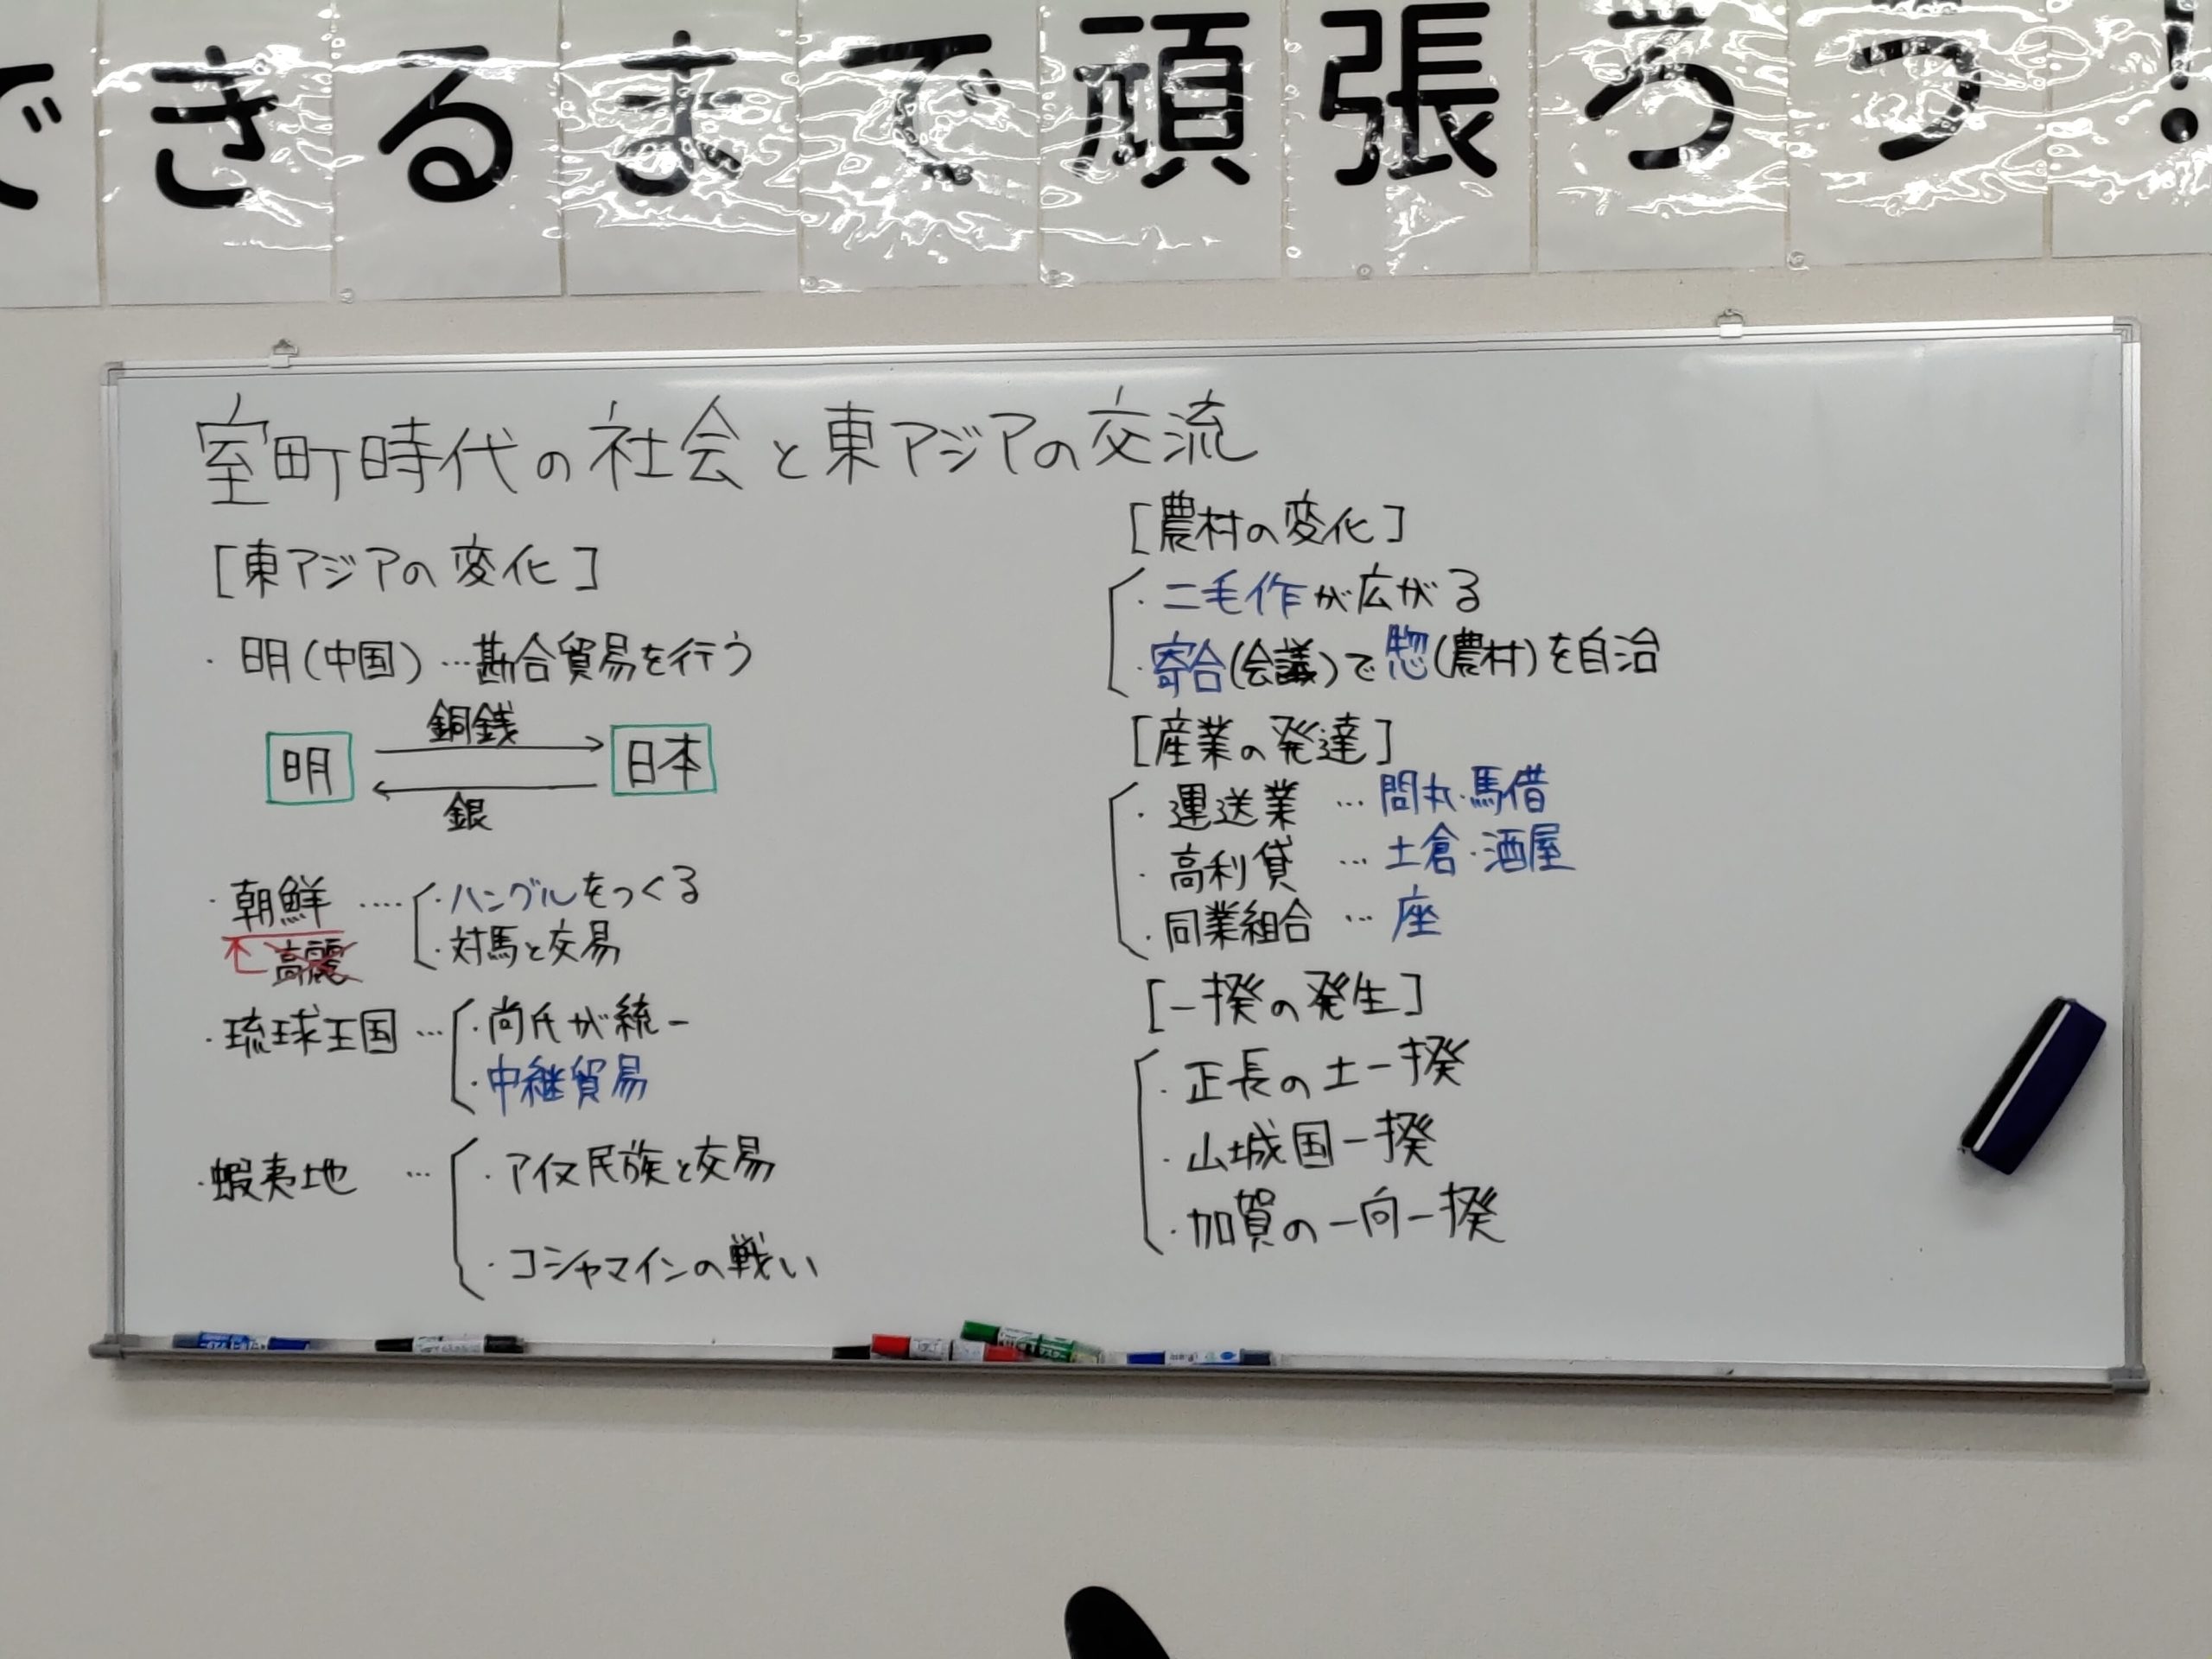 できるまで頑張ろう!
室町時代の社会と東アジアの交流
[東アジアの変化]
・明(中国)…勘合貿易を行う
銅銭
明 日本
銀
・朝鮮 ‥‥ ・ハングルをつくる
高麗 ・対馬と交易
・琉球王国 … ・尚氏が統一
・中継貿易
・蝦夷地 … ・アイヌ民族と交易
・コシャマインの戦い
[農村の変化]
・二毛作が広がる
・寄合(会議)で惣(農村)を自治
[産業の発達]
・運送業 … 問丸・馬借
・高利貸 … 土倉・酒屋
・同業組合 … 座
[一揆の発生]
・正長の土一揆
・山城国一揆
・加賀の一向一揆